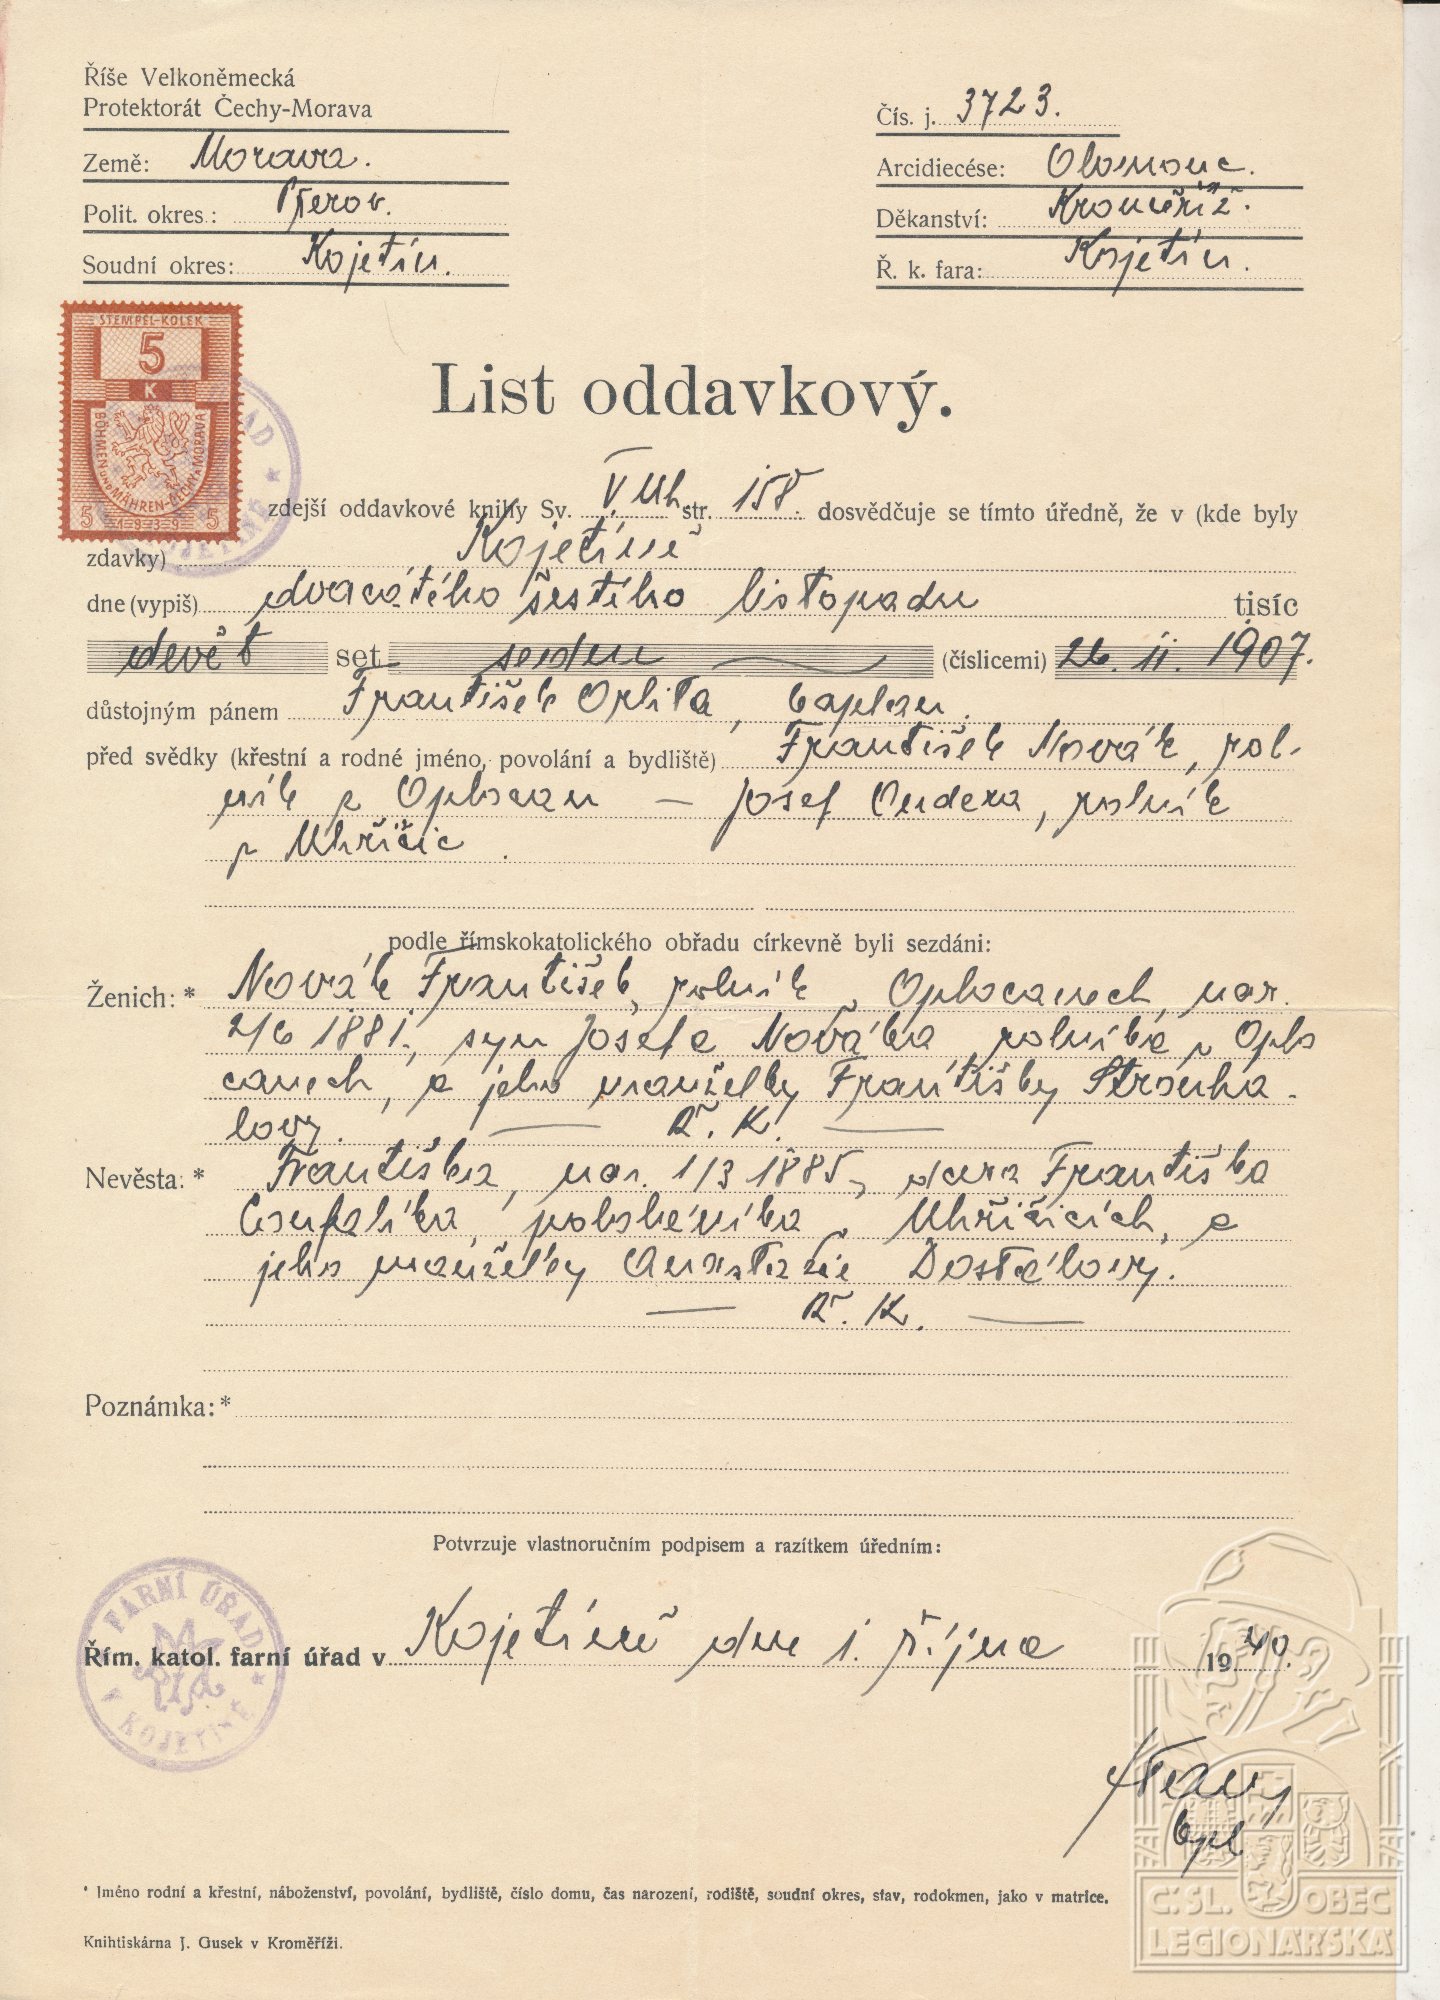 Říše Velkoněmecká
Protektorát Čechy-Morava
Země: Morava.
Polit. okres: Přerov.
Soudní okres: Kojetín.
Čís. j. 3723.
Arcidiecése: Olomouc.
Děkanství: Kroměříž.
Ř. k. fara: Kojetín.
STEMPEL-KOLEK
5
K
BÖHMEN UND MÄHREN-ČECHY A MORAVA
5 1939 5
List oddavkový.
zdejší oddavkové knihy Sv. V. Uh str. 158. dosvědčuje se tímto úředně, že v (kde byly
zdavky) Kojetíně
dne (vypiš) dvacátého šestého listopadu tisíc
devět set sedm (číslicemi) 26. 11. 1907.
důstojným pánem František Orlita, kaplan.
před svědky (křestní a rodné jméno, povolání a bydliště) František Novák, rol-
ník z Oplocan — Josef Ondera, rolník
z Uhřičic.
podle římskokatolického obřadu církevně byli sezdáni:
Ženich:* Novák František, rolník v Oplocanech, nar.
2/6 1881, syn Josefa Nováka rolníka v Oplo
canech, a jeho manželky Františky Strouha-
lovy. — Ř. K. —
Nevěsta:* Františka, nar. 1/3 1885, dcera Františka
Coufalíka, v Uhřičicích, a
jeho manželky Anastazie Dostálovy.
— Ř. K. —
Poznámka:*
Potvrzuje vlastnoručním podpisem a razítkem úředním:
FARNÍ ÚŘAD
V KOJETÍNĚ
Řím. katol. farní úřad v Kojetíně dne 1. října 1940.
kpl
* Jméno rodní a křestní, náboženství, povolání, bydliště, číslo domu, čas narození, rodiště, soudní okres, stav, rodokmen, jako v matrice.
Knihtiskárna J. Gusek v Kroměříži.
Č.SL. OBEC
LEGIONÁŘSKÁ